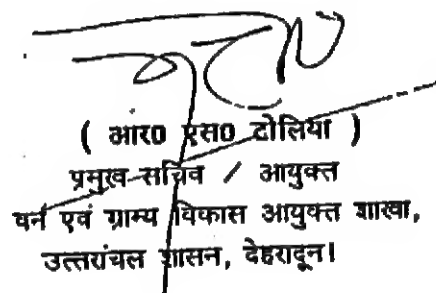 ( आर० एस० टोलिया )
प्रमुख सचिव / आयुक्त
वन एवं ग्राम्य विकास आयुक्त शाखा,
उत्तरांचल शासन, देहरादून।